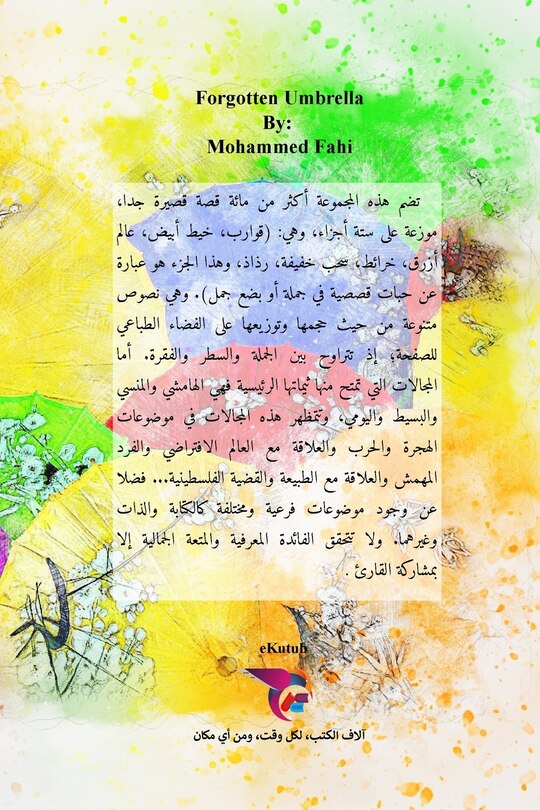 Forgotten Umbrella
By:
Mohammed Fahi
تضم هذه المجموعة أكثر من مائة قصة قصيرة جدا،
موزعة على ستة أجزاء، وهي: (قوارب، خيط أبيض، عالم
أزرق، خرائط، سحب خفيفة، رذاذ، وهذا الجزء هو عبارة
عن حبات قصصية في جملة أو بضع جمل). وهي نصوص
متنوعة من حيث حجمها وتوزيعها على الفضاء الطباعي
للصفحة؛ إذ تتراوح بين الجملة والسطر والفقرة. أما
المجالات التي تمتح منها ثيماتها الرئيسية فهي الهامشي والمنسي
والبسيط واليومي، وتتمظهر هذه المجالات في موضوعات
الهجرة والحرب والعلاقة مع العالم الافتراضي والفرد
المهمش والعلاقة مع الطبيعة والقضية الفلسطينية... فضلا
عن وجود موضوعات فرعية ومختلفة كالكتابة والذات
وغيرهما. ولا تتحقق الفائدة المعرفية والمتعة الجمالية إلا
بمشاركة القارئ .
eKutub
آلاف الكتب، لكل وقت، ومن أي مكان